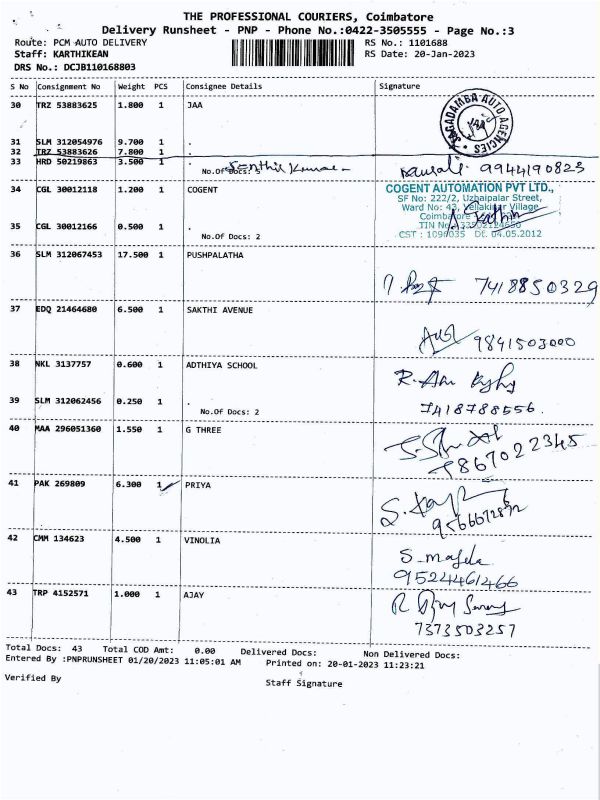 THE PROFESSIONAL COURIERS, Coimbatore
Delivery Runsheet - PNP - Phone No.:0422-3505555 - Page No.:3
Route: PCM AUTO DELIVERY RS No.: 1101688
Staff: KARTHIKEAN RS Date: 20-Jan-2023
DRS No.: DCJB110168803
S No Consignment No Weight PCS Consignee Details Signature
30 TRZ 53883625 1.800 1 JAA
JAGADAMBA AUTO AGENCIES
31 SLM 312054976 9.700 1 .
32 TRZ 53883626 7.800 1 .
33 HRD 50219863 3.500 1 .
No.Of Docs: 9944190823
34 CGL 30012118 1.200 1 COGENT
COGENT AUTOMATION PVT LTD.,
SF No: 222/2, Street,
Ward No: 43, Village
Coimbatore
35 CGL 30012166 0.500 1 .
TIN No
No.Of Docs: 2 CST : Dt. 04.05.2012
36 SLM 312067453 17.500 1 PUSHPALATHA
7418850329
37 EDQ 21464680 6.500 1 SAKTHI AVENUE
9841503000
38 NKL 3137757 0.600 1 ADTHIYA SCHOOL
39 SLM 312062456 0.250 1 .
No.Of Docs: 2 7418788556.
40 MAA 296051360 1.550 1 G THREE
9867022345
41 PAK 269809 6.300 1 PRIYA
42 CMM 134623 4.500 1 VINOLIA
9524461466
43 TRP 4152571 1.000 1 AJAY
7373503257
Total Docs: 43 Total COD Amt: 0.00 Delivered Docs: Non Delivered Docs:
Entered By :PNPRUNSHEET 01/20/2023 11:05:01 AM Printed on: 20-01-2023 11:23:21
Verified By
Staff Signature